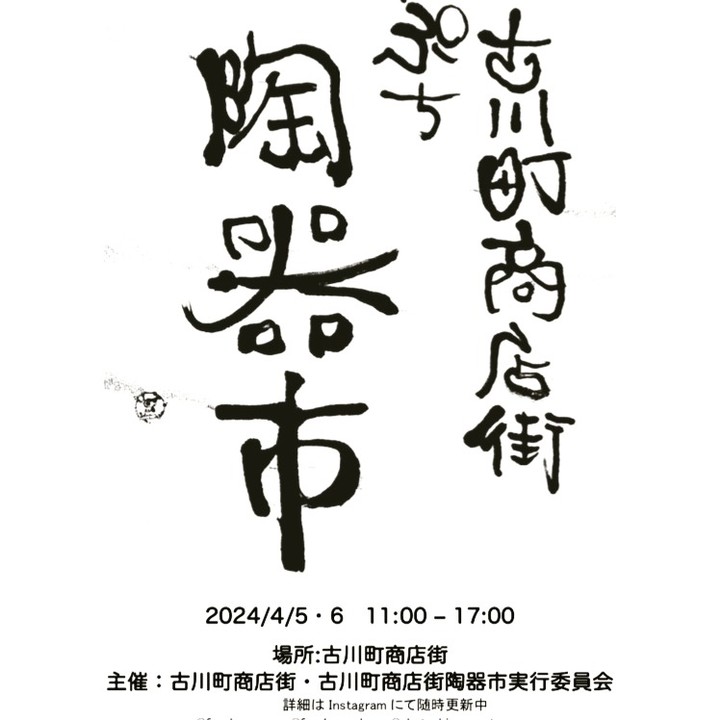 古川町商店街
ぷち
陶器市
2024/4/5・6 11:00 – 17:00
場所:古川町商店街
主催：古川町商店街・古川町商店街陶器市実行委員会
詳細は Instagram にて随時更新中